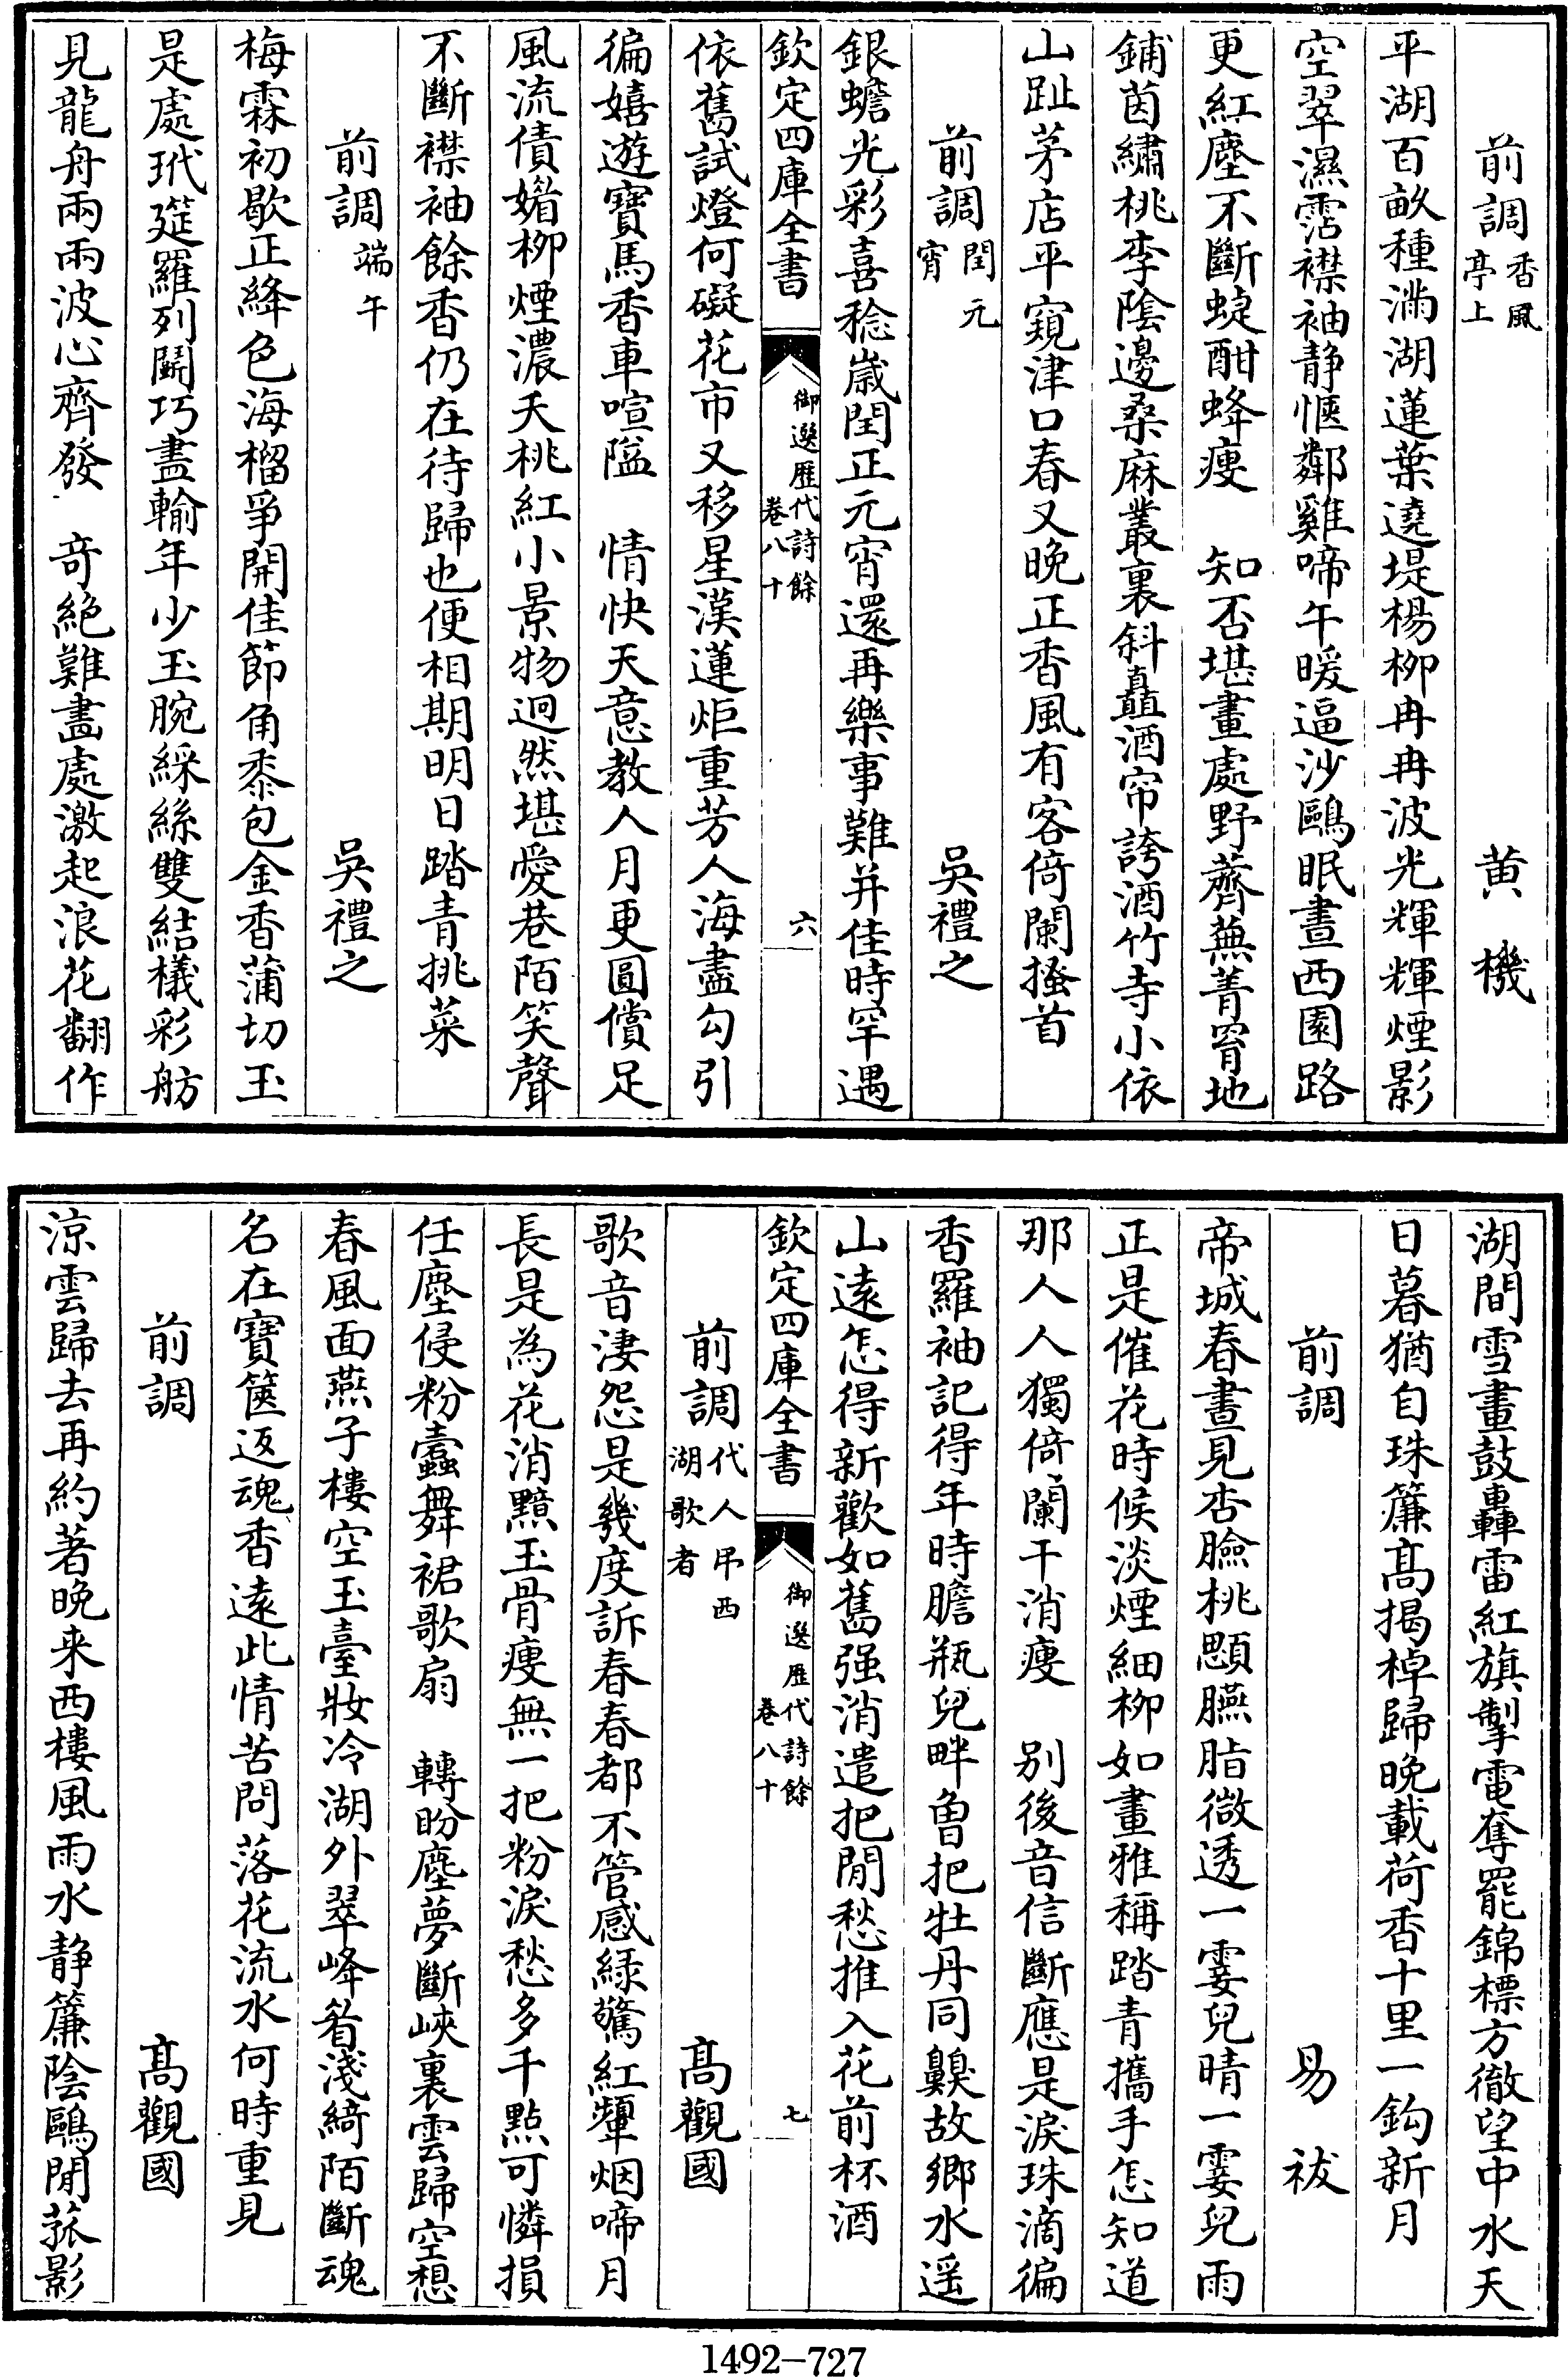 前調香風亭上　黄機
平湖百畝種滿湖蓮葉遶堤楊柳冉冉波光輝輝煙影
空翠濕霑襟袖静愜鄰雞啼午暖逼沙鷗眠晝西園路
更紅塵不斷蜨酣蜂瘦　知否堪畫處野薺蕪菁窅地
鋪茵繡桃李陰邊桑麻叢裏斜矗酒帘誇酒竹寺小依
山趾茅店平窺津口春又晚正香風有客倚闌搔首
前調閏元宵　吳禮之
銀蟾光彩喜稔歳閏正元宵還再樂事難并佳時罕遇
欽定四庫全書　御選歴代詩餘卷八十　六
依舊試燈何礙花市又移星漢蓮炬重芳人海盡勾引
徧嬉遊寶馬香車喧隘　情快天意教人月更圓償足
風流債媚柳煙濃夭桃紅小景物迥然堪愛巷陌笑聲
不斷襟袖餘香仍在待歸也便相期明日踏青挑菜
前調端午　吳禮之
梅霖初歇正絳色海榴爭開佳節角黍包金香蒲切玉
是處玳筵羅列鬭巧盡輸年少玉腕綵絲雙結檥彩舫
見龍舟兩兩波心齊發　奇絶難畫處激起浪花翻作
湖間雪畫鼓轟雷紅旗掣電奪罷錦標方徹望中水天
日暮猶自珠簾髙揭棹歸晚載荷香十里一鈎新月
前調　易祓
帝城春晝見杏臉桃顋臙脂微透一霎兒晴一霎兒雨
正是催花時候淡煙細柳如畫雅稱踏青攜手怎知道
那人人獨倚闌干消瘦　别後音信斷應是淚珠滴徧
香羅袖記得年時膽瓶兒畔曽把牡丹同齅故鄉水遥
山遠怎得新歡如舊强消遣把閒愁推入花前杯酒
欽定四庫全書　御選歴代詩餘卷八十　七
前調代人弔西湖歌者　髙觀國
歌音淒怨是幾度訴春春都不管感緑驚紅顰烟啼月
長是為花消黯玉骨瘦無一把粉淚愁多千點可憐損
任塵侵粉蠧舞裙歌扇　轉盼塵夢斷峽裏雲歸空想
春風面燕子樓空玉臺妝冷湖外翠峰眉淺綺陌斷魂
名在寶篋返魂香遠此情苦問落花流水何時重見
前調　髙觀國
涼雲歸去再約著晚来西樓風雨水静簾陰鷗閒菰影
1492-727